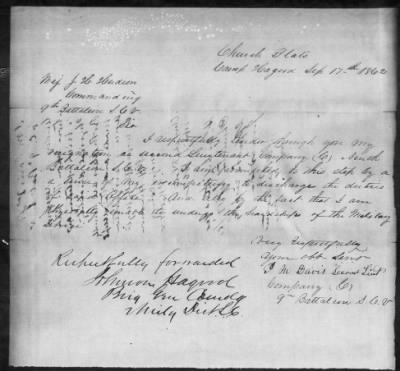 Church Flats
Camp Hagood Sep 17th 1862
Maj J H Hudson
Commanding
9th Battalion S. C. V
Sir
I respectfully tender through you my
resignation as second Lieutenant Company (C) Ninth
Battalion S. C. V. I am to this step by a
sense of my incompetency to discharge the duties
of said office. And also by the fact that I am
Physically unable to undergo the hardships of the Military
Service
Very Respectfully
your obt Servt
P. M. Davis Second Lieut
Company (C)
9th Battalion S. C. V
Respectfully forwarded
Johnson Hagood
Brig Gen Comdg